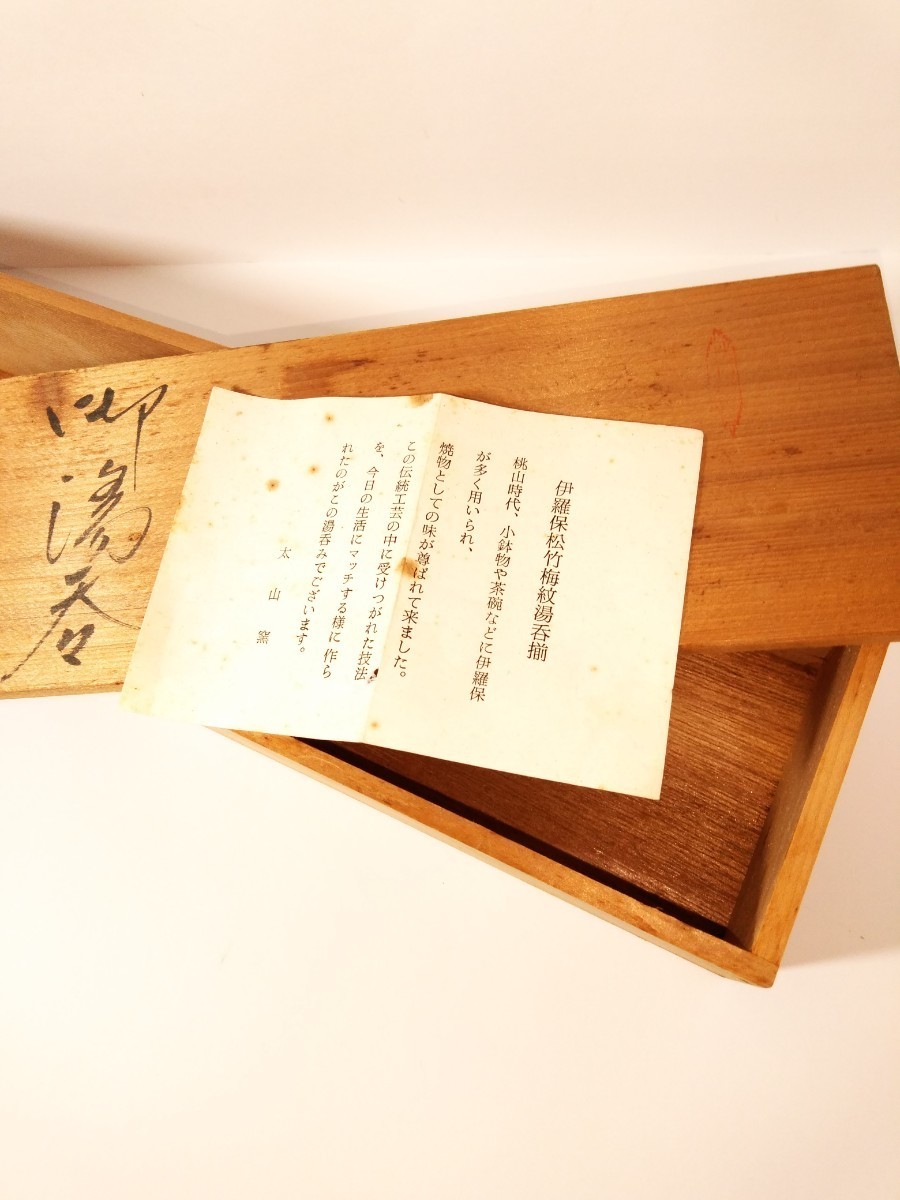 伊羅保松竹梅紋湯呑揃
桃山時代、小鉢物や茶碗などに伊羅保
が多く用いられ、
焼物としての味が尊ばれて来ました。
この伝統工芸の中に受けつがれた技法
を、今日の生活にマッチする様に作ら
れたのがこの湯呑みでございます。
太山窯
御湯呑